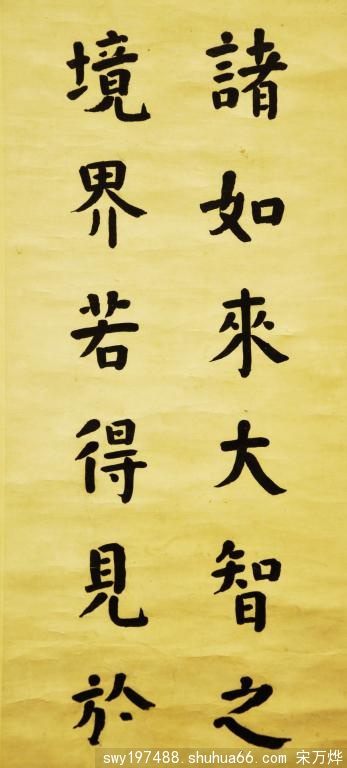 諸如來大智之
境界若得見於
swy197488.shuhua66.com 宋万烨